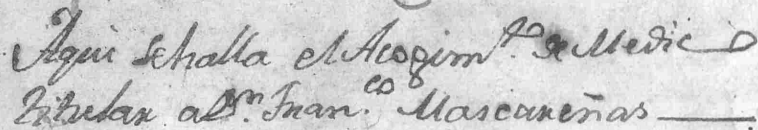 Aqui se halla el Acogim.to de Medico
titular a Dn. Fran.co Mascareñas